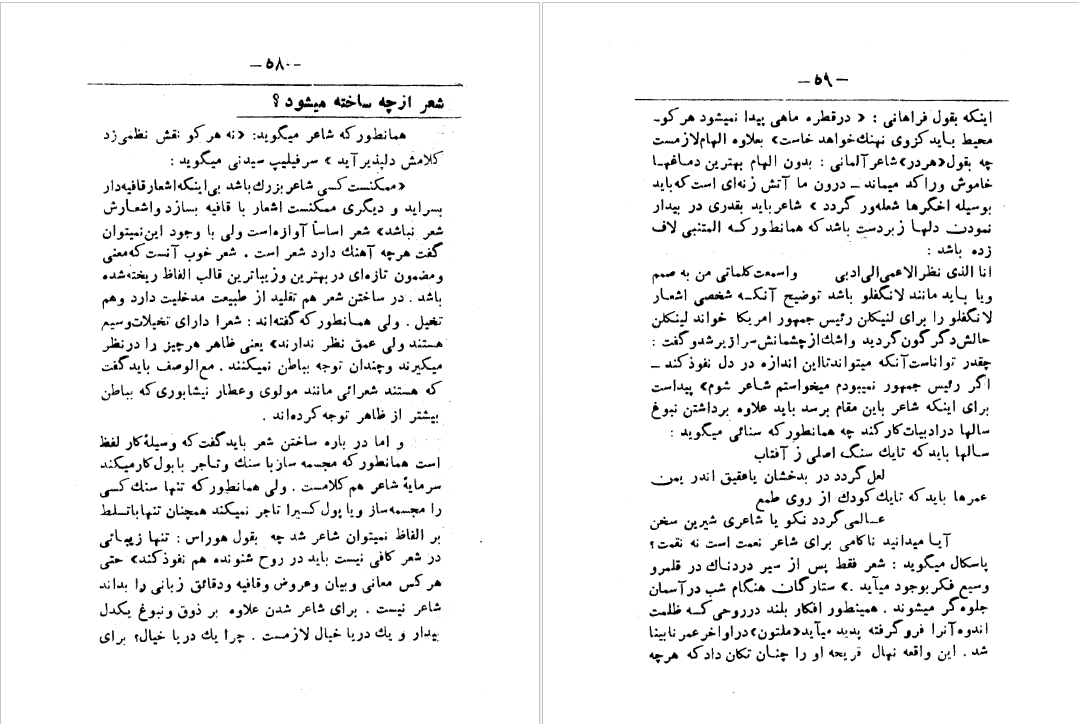 -۵۸۰-
شعر ازچه ساخته میشود ؟
همانطور که شاعر میگوید: «نه هر کو نقش نظمی زد
کلامش دلپذیر آید » سرفیلیپ سیدنی میگوید :
«ممکنست کسی شاعر بزرك باشد بی اینکه اشعار قافیه دار
بسراید و دیگری ممکنست اشعار با قافیه بسازد واشعارش
شعر نباشد» شعر اساساً آوازه است ولی با وجود این نمیتوان
گفت هرچه آهنك دارد شعر است . شعر خوب آنست که معنی
ومضمون تازه‌ای در بهترین و زیباترین قالب الفاظ ریخته شده
باشد . در ساختن شعر هم تقلید از طبیعت مدخلیت دارد وهم
تخیل . ولی همانطور که گفته‌اند : شعرا دارای تخیلات وسیع
هستند ولی عمق نظر ندارند» یعنی ظاهر هرچیز را در نظر
میگیرند وچندان توجه بباطن نمیکنند . مع‌الوصف باید گفت
که هستند شعرائی مانند مولوی وعطار نیشابوری که بباطن
بیشتر از ظاهر توجه کرده‌اند .
و اما در باره ساختن شعر باید گفت که وسیلهٔ کار لفظ
است همانطور که مجسمه ساز با سنك وتاجر با پول کار میکند
سرمایهٔ شاعر هم کلامست . ولی همانطور که تنها سنك کسی
را مجسمه ساز ویا پول کسیرا تاجر نمیکند همچنان تنها باتسلط
بر الفاظ نمیتوان شاعر شد چه بقول هوراس : تنها زیبائی
در شعر کافی نیست باید در روح شنونده هم نفوذ کند» حتی
هر کس معانی وبیان وعروض وقافیه ودقائق زبانی را بداند
شاعر نیست . برای شاعر شدن علاوه بر ذوق ونبوغ یکدل
بیدار و یك دریا خیال لازمست . چرا یك دریا خیال؟ برای
-۵۹-
اینکه بقول فراهانی : « درقطره ماهی پیدا نمیشود هر کو-
محیط باید کزوی نهنك خواهد خاست» بعلاوه الهام لازمست
چه بقول «هردر» شاعر آلمانی : بدون الهام بهترین دماغها
خاموش وراکد میماند - درون ما آتش زنه‌ای است که باید
بوسیله اخگرها شعله‌ور گردد » شاعر باید بقدری در بیدار
نمودن دلها زبردست باشد که همانطور که المتنبی لاف
زده باشد :
انا الذی نظر الاعمی الی ادبی واسمعت کلماتی من به صمم
ویا باید مانند لانگفلو باشد توضیح آنکه شخصی اشعار
لانگفلو را برای لنیکلن رئیس جمهور امریکا خواند لینکلن
حالش دگر گون گردید واشك از چشمانش سرازیر شد و گفت :
چقدر تواناست آنکه میتواند تا این اندازه در دل نفوذ کند -
اگر رئیس جمهور نمیبودم میخواستم شاعر شوم» پیداست
برای اینکه شاعر باین مقام برسد باید علاوه برداشتن نبوغ
سالها در ادبیات کار کند چه همانطور که سنائی میگوید :
سالها باید که تایك سنگ اصلی ز آفتاب
لعل گردد در بدخشان یا عقیق اندر یمن
عمرها باید که تایك کودك از روی طمع
عالمی گردد نکو یا شاعری شیرین سخن
آیا میدانید ناکامی برای شاعر نعمت است نه نقمت ؟
پاسکال میگوید : شعر فقط پس از سیر دردناك در قلمرو
وسیع فکر بوجود میآید .» ستارگان هنگام شب در آسمان
جلوه گر میشوند . همینطور افکار بلند در روحی که ظلمت
اندوه آنرا فرو گرفته پدید میآید «ملتون» در اواخر عمر نابینا
شد . این واقعه نهال قریحه او را چنان تکان داد که هرچه